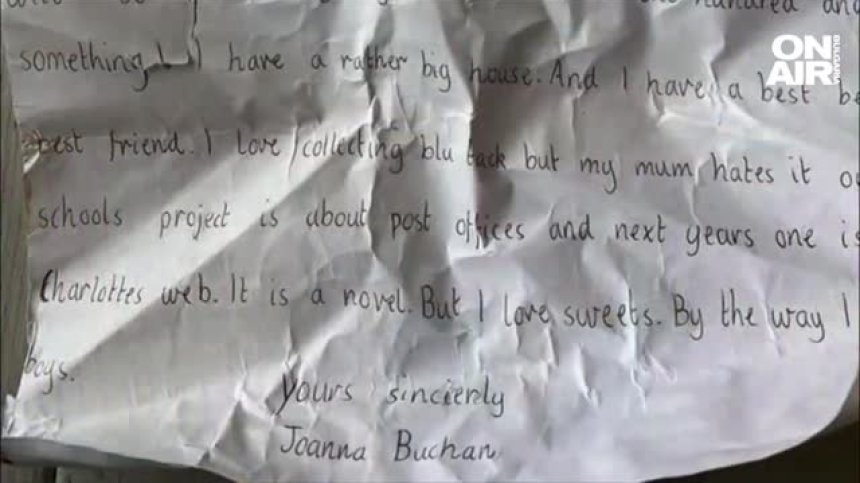 hundred and
something. I have a rather big house. And I have a best
best friend. I love collecting blu tack but my mum hates it
schools project is about post offices and next years one is
Charlottes web. It is a novel. But I love sweets. By the way I
boys.
yours sincierly
Joanna Buchan
ON AIR
BULGARIA